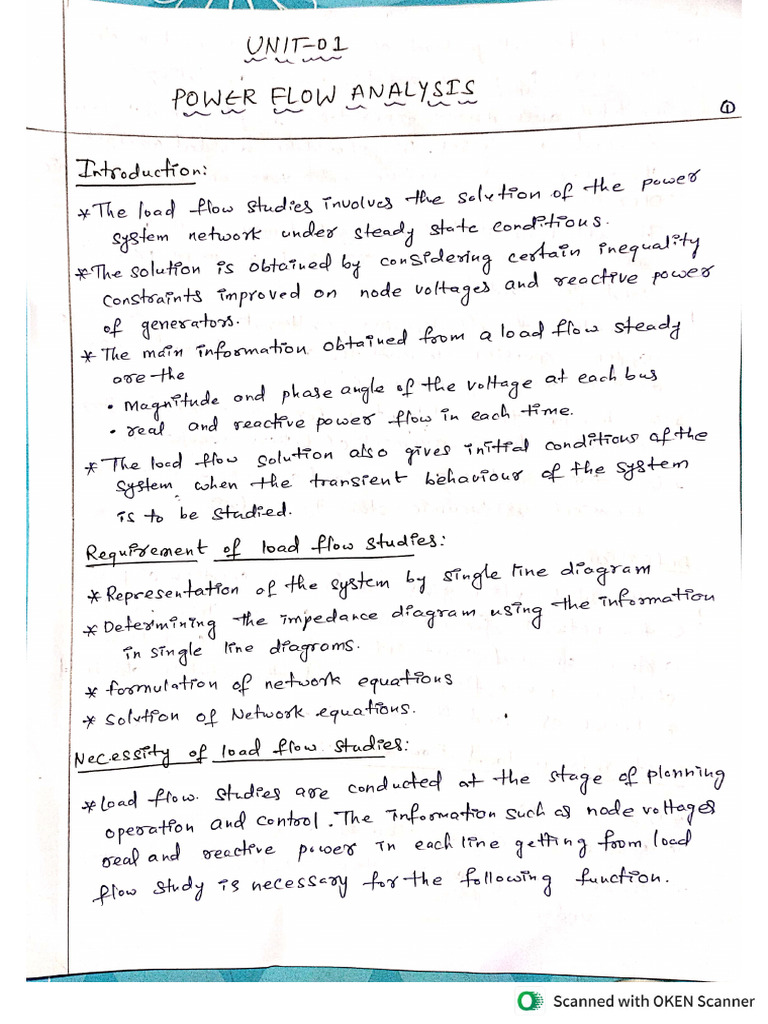 UNIT-01
POWER FLOW ANALYSIS
1
Introduction:
* The load flow studies involves the solution of the power
system network under steady state conditions.
* The solution is obtained by considering certain inequality
constraints improved on node voltages and reactive power
of generators.
* The main information obtained from a load flow steady
are the
• Magnitude and phase angle of the voltage at each bus
• real and reactive power flow in each time.
* The load flow solution also gives initial conditions of the
system when the transient behaviour of the system
is to be studied.
Requirement of load flow studies:
* Representation of the system by single line diagram
* Determining the impedance diagram using the information
in single line diagrams.
* formulation of network equations
* solution of Network equations.
Necessity of load flow studies:
* Load flow. studies are conducted at the stage of planning
operation and control. The information such as node voltages
real and reactive power in each line getting from load
flow study is necessary for the following function.
Scanned with OKEN Scanner